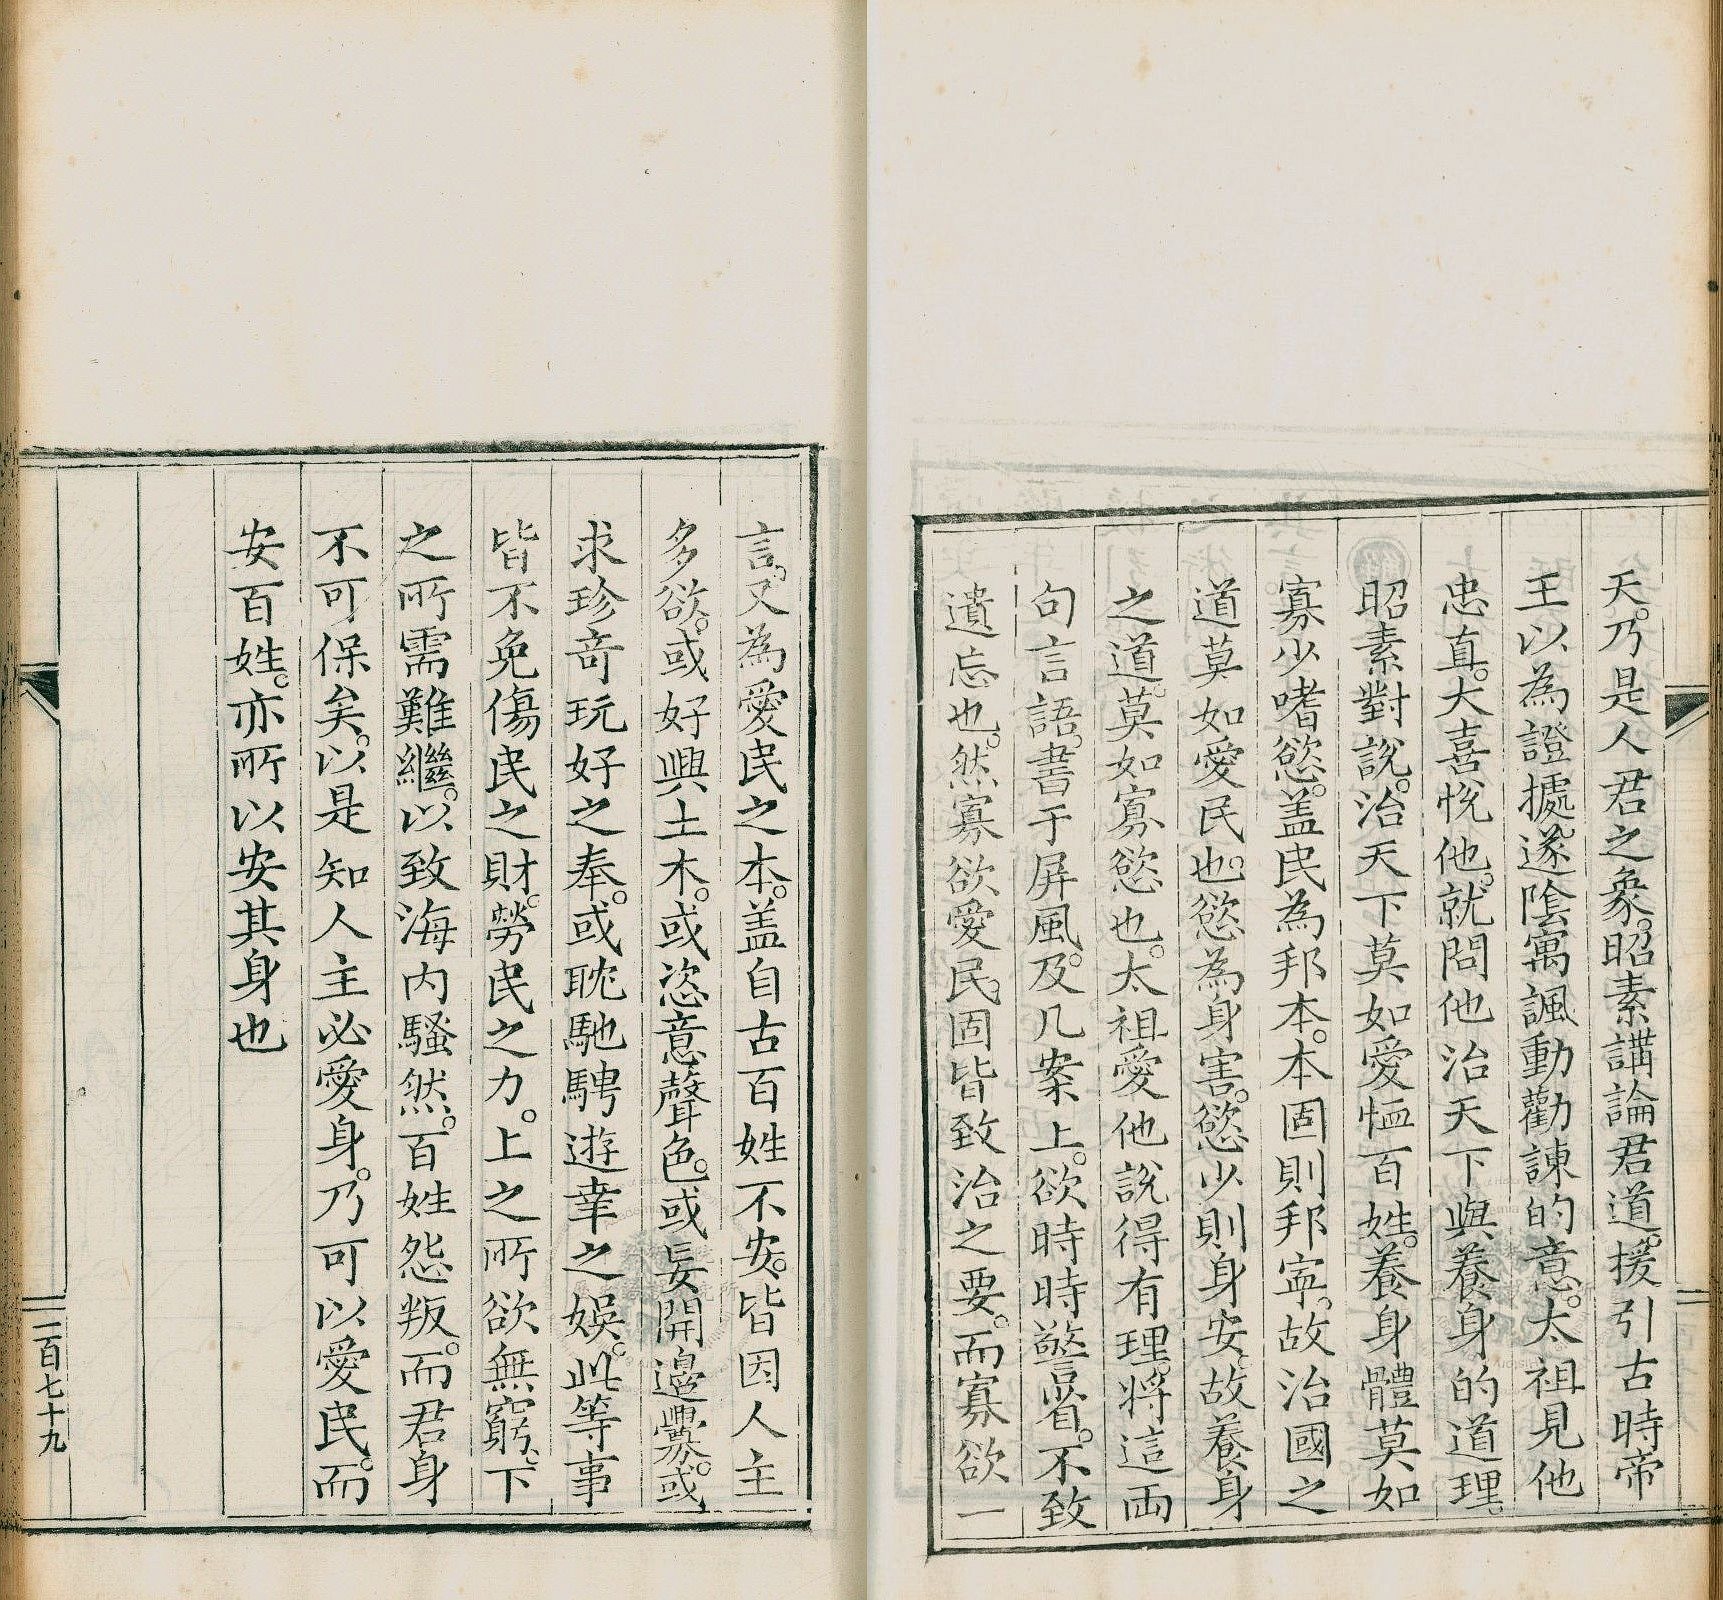 天。乃是人君之象。昭素講論君道。援引古時帝
王以為證據。遂陰寓諷動勸諫的意。太祖見他
忠直。大喜悅他。就問他治天下與養身的道理。
昭素對說。治天下莫如愛恤百姓。養身體莫如
寡少嗜慾。盖民為邦本。本固則邦寧。故治國之
道莫如愛民也。慾為身害。慾少則身安。故養身
之道。莫如寡慾也。太祖愛他說得有理。將這両
句言語。書于屏風。及几案上。欲時時警省。不致
遺忘也。然寡欲愛民。固皆致治之要。而寡欲一
言。又為愛民之本。盖自古百姓不安。皆因人主
多欲。或好興土木。或恣意聲色。或妄開邊釁。或
求珍奇玩好之奉。或耽馳騁遊幸之娛。此等事
皆不免傷民之財。勞民之力。上之所欲無窮。下
之所需難繼。以致海内騷然。百姓怨叛。而君身
不可保矣。以是知人主必愛身。乃可以愛民。而
安百姓。亦所以安其身也
二百七十九